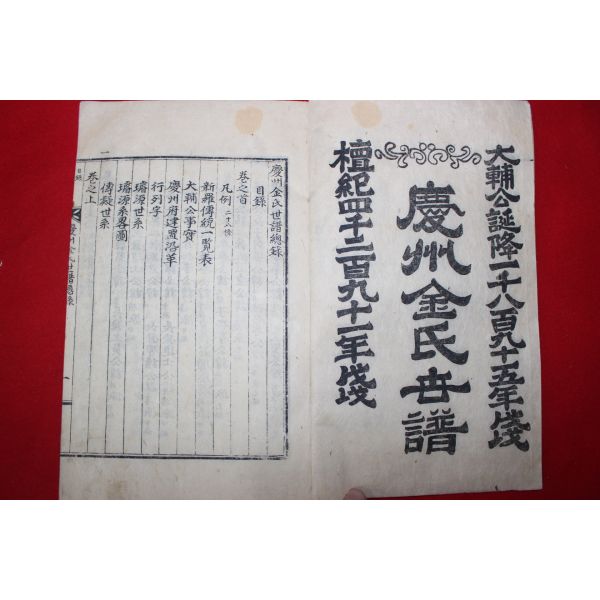 大輔公誕降一千八百九十五年戊戌
慶州金氏世譜
檀紀四千二百九十一年戊戌
慶州金氏世譜總錄
目錄
卷之首
凡例 二十八條
新羅傳統一覽表
大輔公事實
慶州府建置沿革
行列字
璿源世系
璿源系畧圖
傳疑世系
卷之上
慶州金氏世譜總錄
目錄